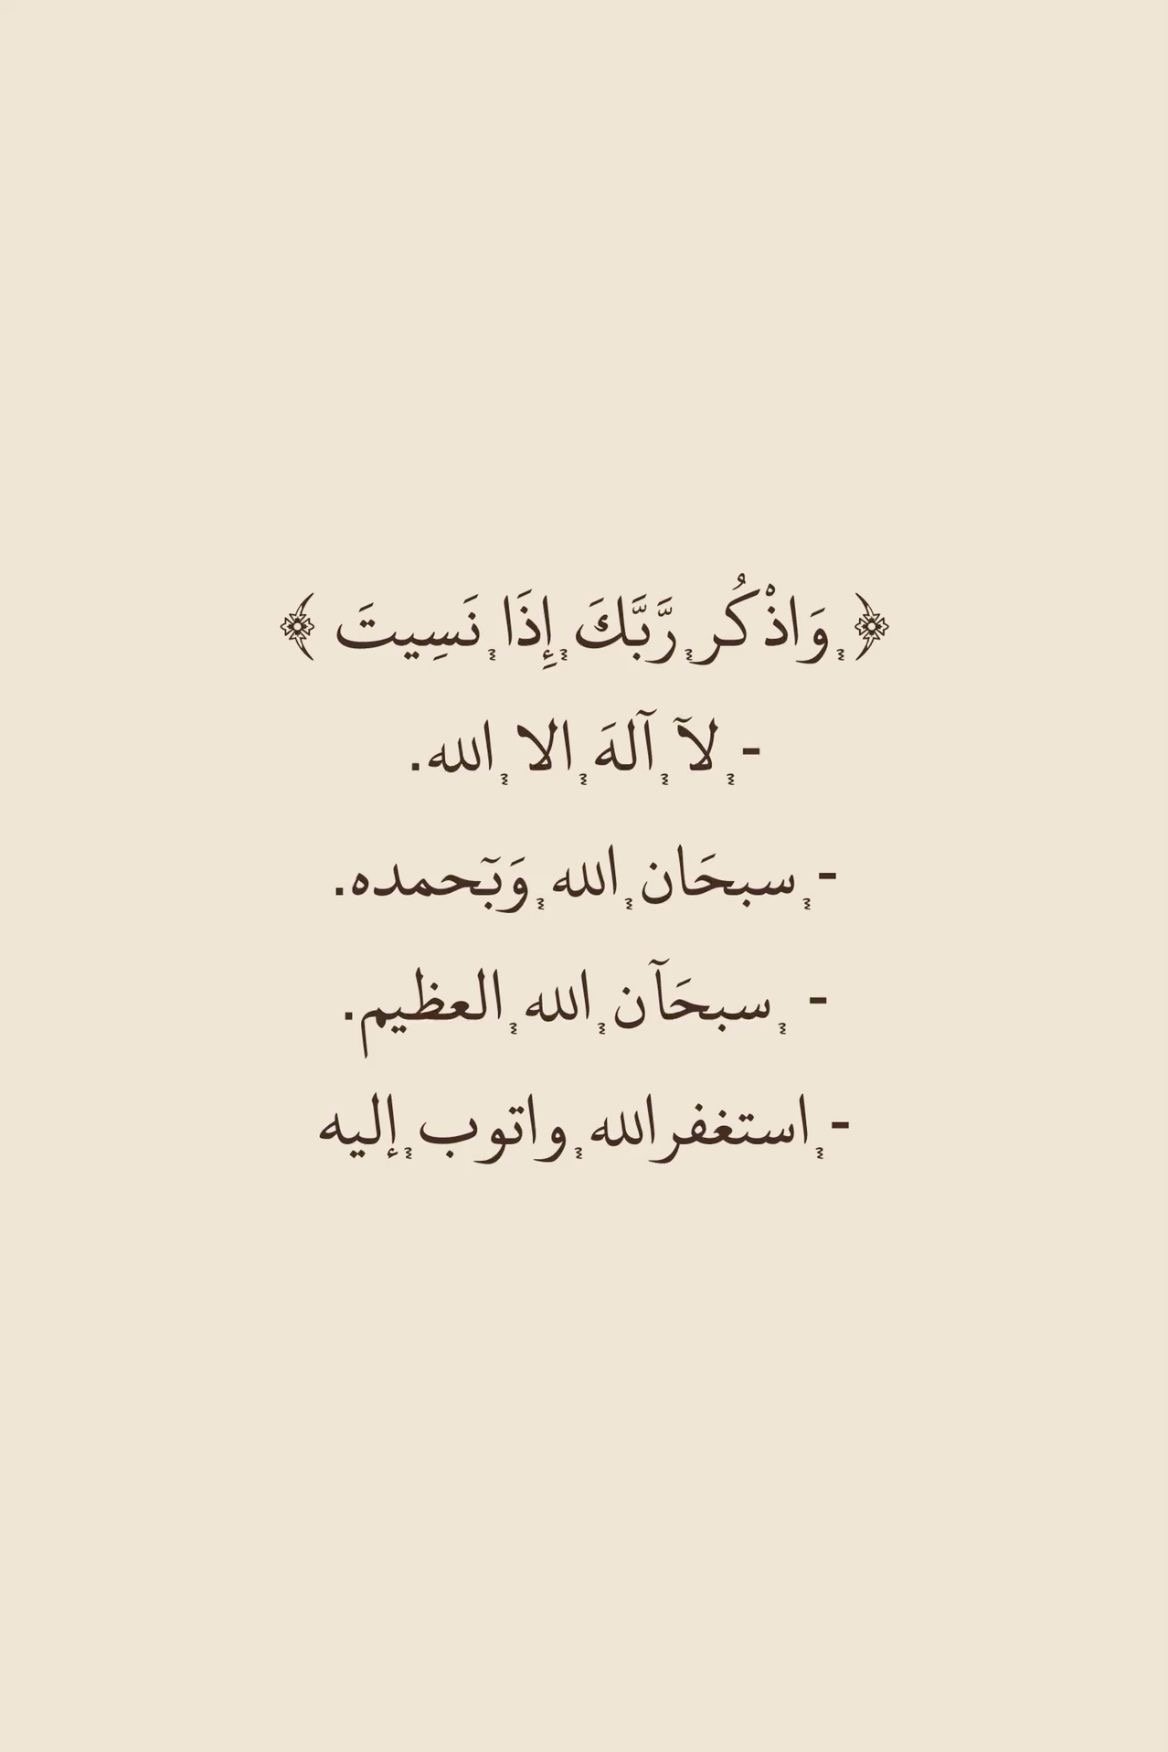 ﴿ وَاذْكُر رَّبَّكَ إِذَا نَسِيتَ ﴾
- لآ آلهَ الا الله.
- سبحَان الله وَبٓحمده.
- سبحَآن الله العظيم.
- استغفرالله واتوب إليه